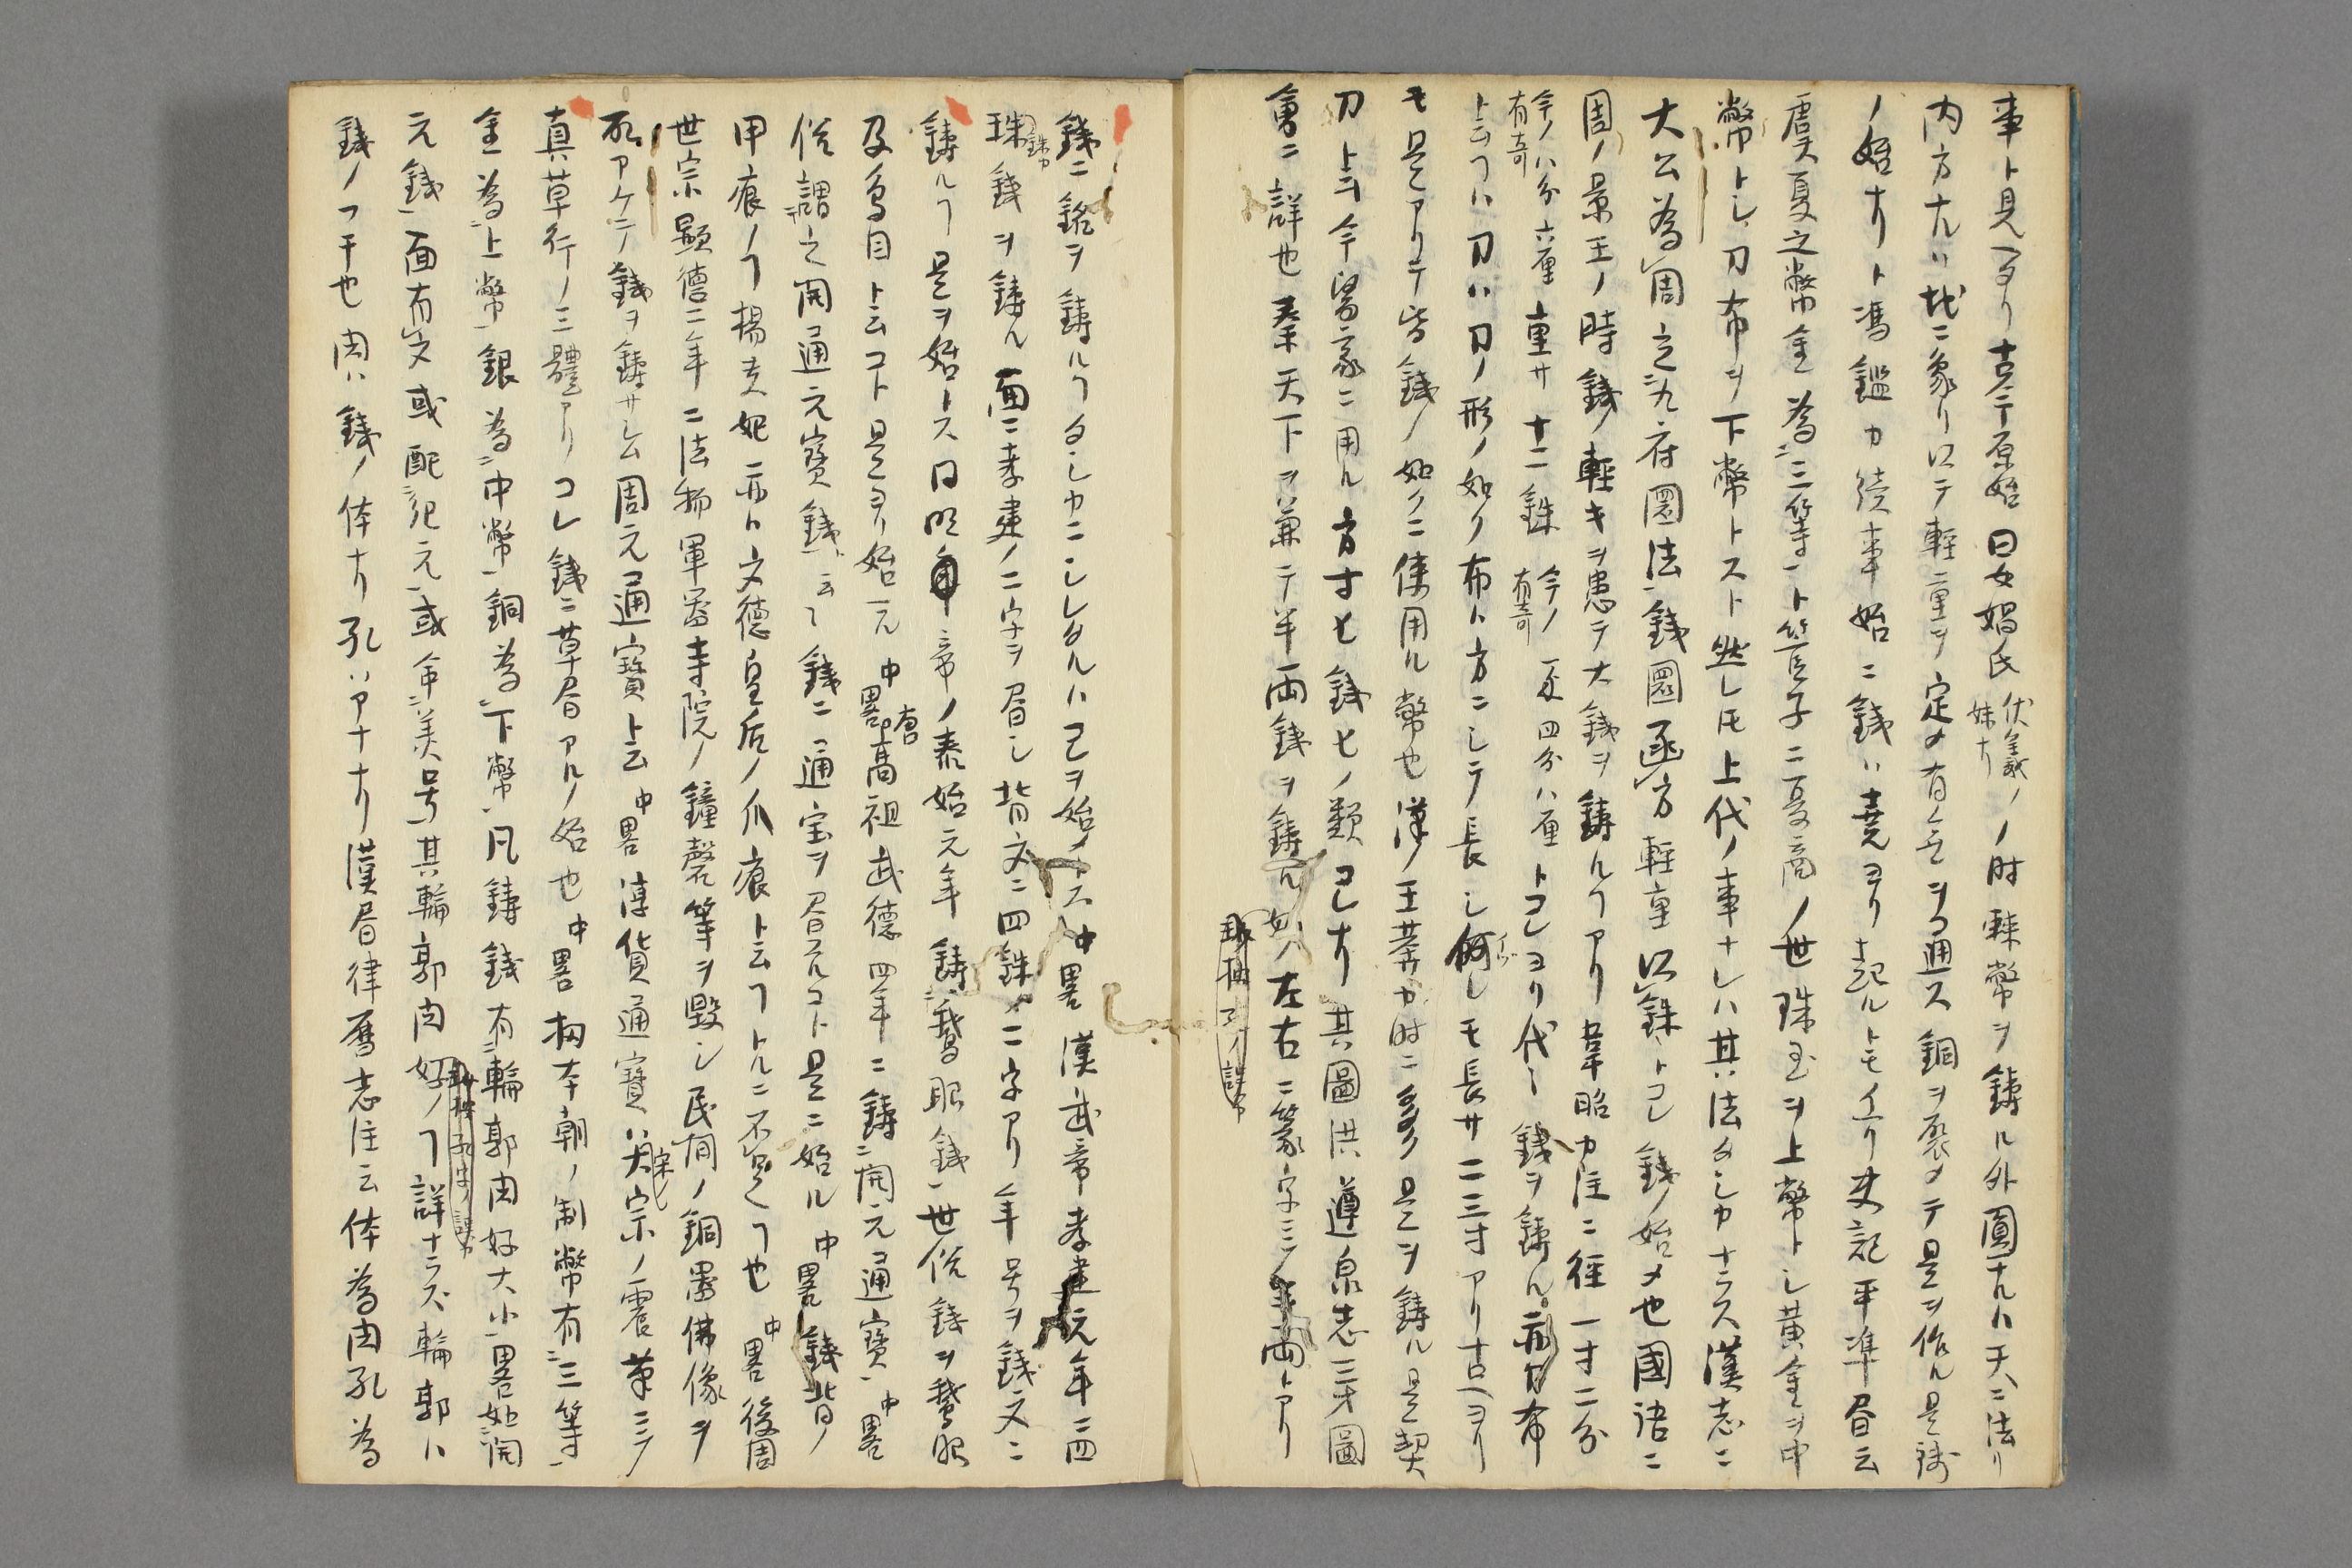 事ト見ヘタリ古今原始曰女媧氏伏羲ノ妹ナリノ時棘幣ヲ鋳ル外圓ナルハ天ニ法リ
内方ナルハ地ニ象リ以テ軽重ヲ定メ有無ヲ通ス銅ヲ褭メテ是ヲ作ル是錢
ノ始ナリト馮鑑カ続事始ニ錢ハ堯ヨリ起ルトモイヘリ史記平準書云
虞夏之幣金為三等ト管子ニ夏商ノ世珠玉ヲ上幣トシ黄金ヲ中
幣トシ刀布ヲ下幣トスト然レ𪜈上代ノ事ナレハ其法タシカナラス漢志ニ
大公為周立九府圜法錢圜函方軽重以銖トコレ錢ノ始メ也國語ニ
周ノ景王ノ時錢ノ軽キヲ患テ大錢ヲ鋳ルヿアリ韋昭カ注ニ徑一寸二分
今ノ八分六厘有奇重サ十二銖今ノ一匁四分八厘有奇トコレヨリ代々錢ヲ鋳ル亦刀布
ト云フハ刀ハ刀ノ形ノ如ク布ハ方ニシテ長シ何レモ長サ二三寸アリ古ヘヨリ
モ是アリテ皆錢ノ如クニ使用ル幣也漢ノ王莽カ時ニ多ク是ヲ鋳ル是契
刀ト云今醫家ニ用ル方寸匕錢匕ノ類コレナリ其圖洪遵泉志三才圖
會ニ詳也秦天下ヲ兼テ半両錢ヲ鋳ル好ノ左右ニ篆字ニテ半両トアリ
錢ニ銘ヲ鋳ルヿタシカニシレタルハコヲ始メトス中畧漢武帝孝建元年ニ四
珠錢ヲ鋳ル面ニ孝建ノ二字ヲ書シ背文ニ四銖ノ二字アリ年号ヲ錢文ニ
鋳ルヿ是ヲ始トス曰明帝ノ泰始元年鋳鵞眼錢世俗錢ヲ鵞眼
及鳥目ト云コト是ヨリ始ル中畧唐高祖武德四年ニ鋳開元通寳中畧
俗謂之開通元寳錢云々錢ニ通宝ヲ書スルコト是ニ始ル中畧錢背ノ
甲痕ノヿ楊貴妃亦ハ文德皇后ノ爪痕ト云フトルニ不足ヿ也中畧後周
世宗顯德二年ニ法物軍器寺院ノ鐘磬等ヲ毀シ民間ノ銅器佛像ヲ
真草行ノ三體アリコレ錢ニ草書アルノ始也中畧扨本朝ノ制幣有三等
金為上幣銀為中幣銅為下幣凡鋳錢有輪郭肉好大小畧如開
元錢面有文或配紀元或命美号其輪郭肉好ノヿ詳ナラズ輪郭ハ
錢ノフチ也肉ハ錢ノ体ナリ孔ハアナナリ漢書律暦志注云体為肉孔為